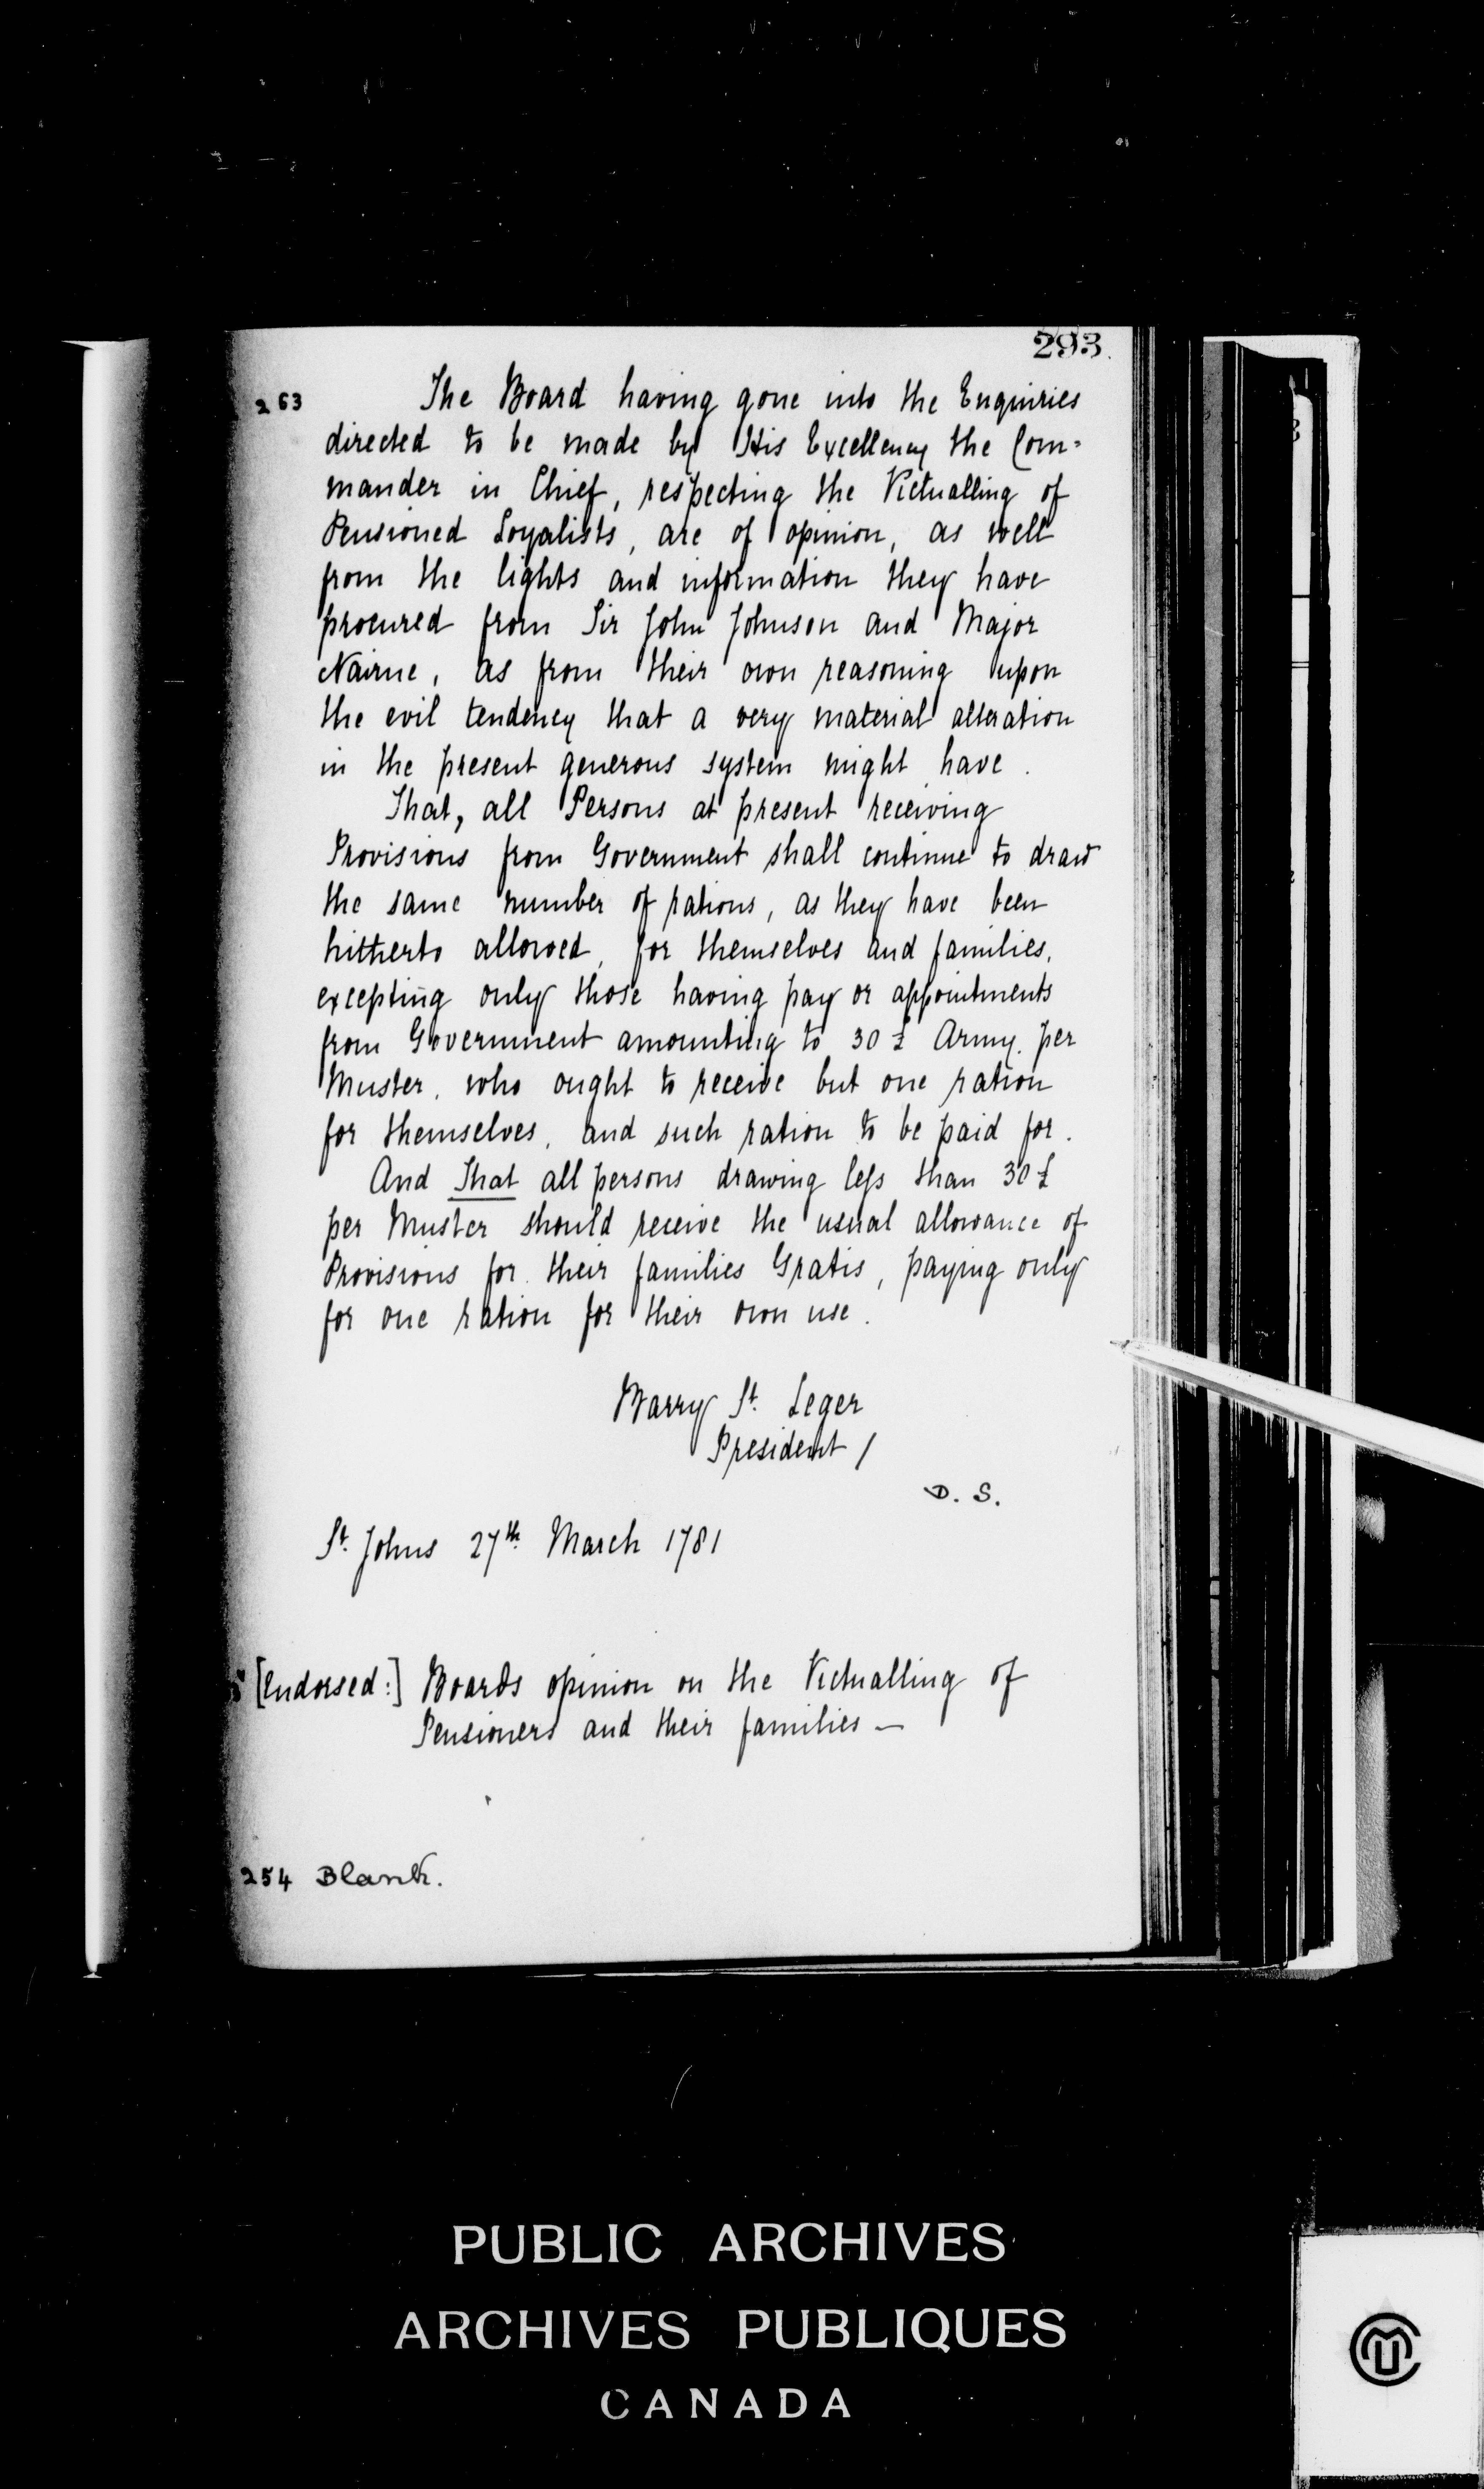 293.
263 The Board having gone into the Enquiries
directed to be made by His Excellency the Com=
mander in Chief, respecting the Victualling of
Pensioned Loyalists, are of opinion, as well
from the lights and information they have
procured from Sir John Johnson and Major
Nairne, as from their own reasoning upon
the evil tendency that a very material alteration
in the present generous system might have.
That, all Persons at present receiving
Provisions from Government shall continue to draw
the same number of rations, as they have been
hitherto allowed, for themselves and families,
excepting only those having pay or appointments
from Government amounting to 30 £ Army. per
Muster, who ought to receive but one ration
for themselves, and such ration to be paid for.
And That all persons drawing less than 30 £
per Muster should receive the usual allowance of
Provisions for their families Gratis, paying only
for one ration for their own use.
Barry St. Leger
President /
D. S.
St. Johns 27th March 1781
[Endorsed:] Boards opinion on the Victualling of
Pensioners and their families —
254 Blank.
PUBLIC ARCHIVES
ARCHIVES PUBLIQUES
CANADA